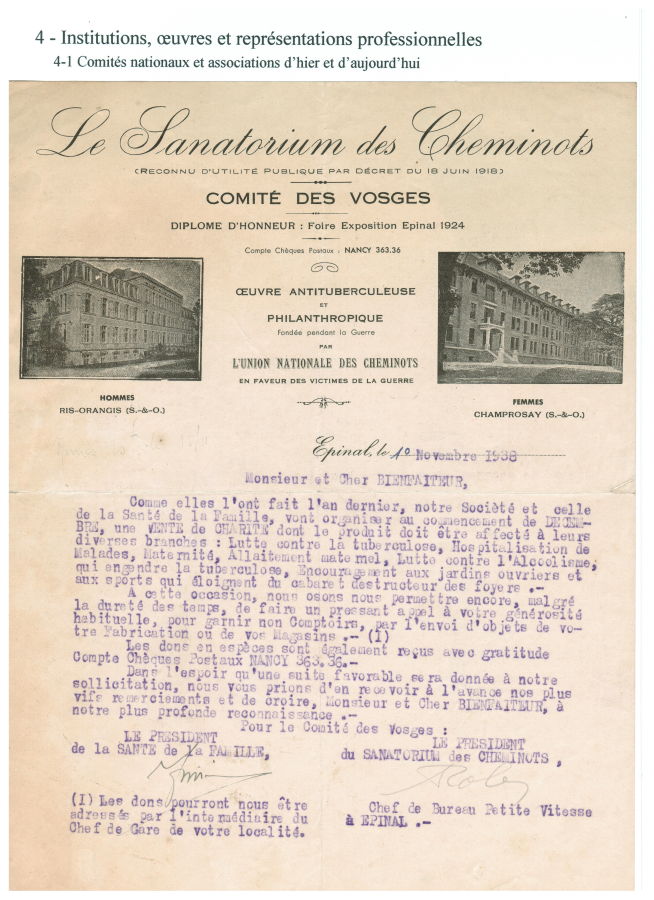 4 - Institutions, œuvres et représentations professionnelles
4-1 Comités nationaux et associations d'hier et d'aujourd'hui
Le Sanatorium des Cheminots
(RECONNU D'UTILITÉ PUBLIQUE PAR DÉCRET DU 18 JUIN 1918)
COMITÉ DES VOSGES
DIPLOME D'HONNEUR : Foire Exposition Epinal 1924
Compte Chèques Postaux : NANCY 363.36
ŒUVRE ANTITUBERCULEUSE
ET
PHILANTHROPIQUE
Fondée pendant la Guerre
PAR
L'UNION NATIONALE DES CHEMINOTS
EN FAVEUR DES VICTIMES DE LA GUERRE
HOMMES
RIS-ORANGIS (S.-&-O.)
FEMMES
CHAMPROSAY (S.-&-O.)
Epinal, le 10 Novembre 1938
Monsieur et Cher BIENFAITEUR,
Comme elles l'ont fait l'an dernier, notre Société et celle
de la Santé de la Famille, vont organiser au commencement de DECEM-
BRE, une VENTE de CHARITE dont le produit doit être affecté à leurs
diverses branches : Lutte contre la tuberculose, Hospitalisation de
Malades, Maternité, Allaitement maternel, Lutte contre l'Alcoolisme,
qui engendre la tuberculose, Encouragement aux jardins ouvriers et
aux sports qui éloignent du cabaret destructeur des foyers .-
A cette occasion, nous osons nous permettre encore, malgré
la dureté des temps, de faire un pressant appel à votre générosité
habituelle, pour garnir non Comptoirs, par l'envoi d'objets de vo-
tre Fabrication ou de vos Magasins .- (I)
Les dons en espèces sont également reçus avec gratitude
Compte Chèques Postaux NANCY 363.36.-
Dans l'espoir qu'une suite favorable sera donnée à notre
sollicitation, nous vous prions d'en recevoir à l'avance nos plus
vifs remerciements et de croire, Monsieur et Cher BIENFAITEUR, à
notre plus profonde reconnaissance .-
Pour le Comité des Vosges :
LE PRESIDENT
de la SANTE de la FAMILLE,
LE PRESIDENT
du SANATORIUM des CHEMINOTS ,
(I) Les dons pourront nous être
adressés par l'intermédiaire du
Chef de Gare de votre localité.
Chef de Bureau Petite Vitesse
à EPINAL .-